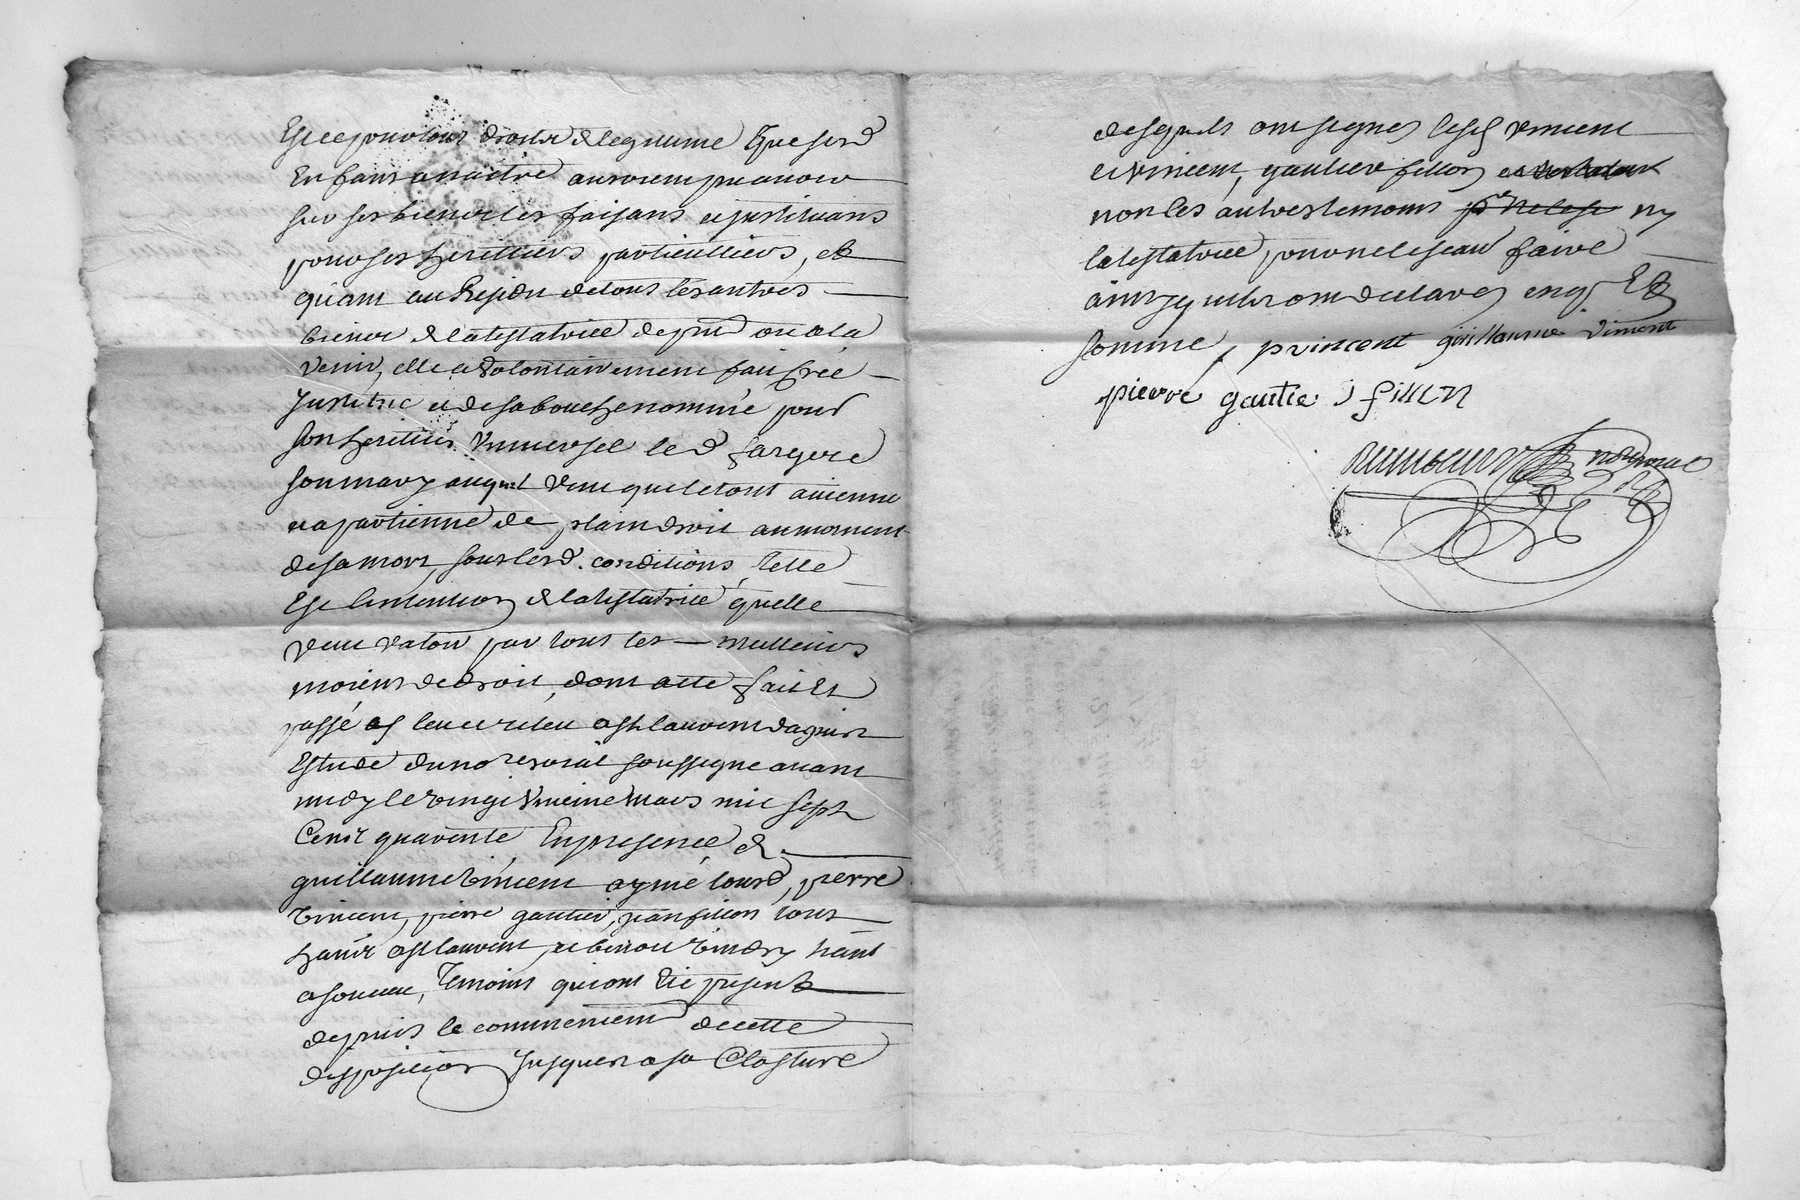 Et ce pour tous droits de legitime que sesd
Enfans a naitre auroient pretendre
sur ses biens les faisans et instituans
pour ses heritiers particulliers, et
quant au Residu de tous les autres
biens de la testatrice de pnt ou a la
venir, elle a volontairement fait Creé
Institué et de sa bouche nommé pour
son heritier Vniversel le d fargere
son mary auquel veut que le tout avienne
et apartienne de plain droit au moment
de sa mort, sous lesd. conditions, telle
Est l'intention de la testatrice qu'elle
veut valoir par tous les meilleurs
moiens de droit, dont acte fait Et
passé au lieu et
Estude du no.re roial soussigné avant
midy le vingt Vnieme Mars mil sept
Cent quarente En presence de
guillaume vincent aymé lourd, pierre
vincent, pierre gautier, jean fillion tous
hants a st laurent, et
a Temoins qui ont été présents
depuis le commencement de cette
disposition Jusques a sa Closture
desquels ont signés lesd vincent
et vincent, gautier fillion
non les autres temoins ny
la testatrice pour ne le scavoir faire
ainsy qu'ils ont declarés enq. Et
somme, p vincent guillaume vincent
pierre gautie J fillon